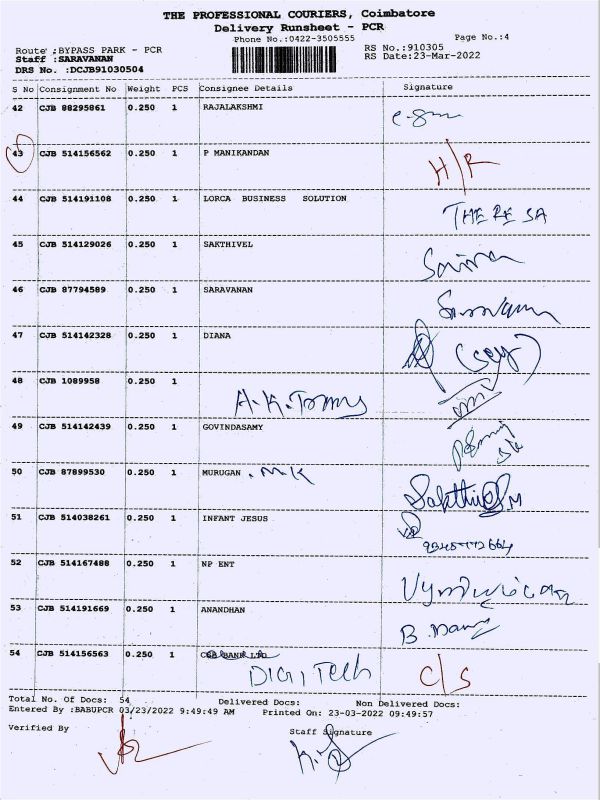 THE PROFESSIONAL COURIERS, Coimbatore
Delivery Runsheet - PCR
Phone No.:0422-3505555 Page No.:4
Route :BYPASS PARK - PCR RS No.:910305
Staff :SARAVANAN RS Date:23-Mar-2022
DRS No. :DCJB91030504
S No Consignment No Weight PCS Consignee Details Signature
42 CJB 88295861 0.250 1 RAJALAKSHMI
43 CJB 514156562 0.250 1 P MANIKANDAN H/R
44 CJB 514191108 0.250 1 LORCA BUSINESS SOLUTION THERESA
45 CJB 514129026 0.250 1 SAKTHIVEL
46 CJB 87794589 0.250 1 SARAVANAN
47 CJB 514142328 0.250 1 DIANA
48 CJB 1089958 0.250 1 A.K.
49 CJB 514142439 0.250 1 GOVINDASAMY
50 CJB 87899530 0.250 1 MURUGAN . M.K
51 CJB 514038261 0.250 1 INFANT JESUS
52 CJB 514167488 0.250 1 NP ENT
53 CJB 514191669 0.250 1 ANANDHAN
54 CJB 514156563 0.250 1 CSB BANK LTD
DIGITECH C/S
Total No. Of Docs: 54 Delivered Docs: Non Delivered Docs:
Entered By :BABUPCR 03/23/2022 9:49:49 AM Printed On: 23-03-2022 09:49:57
Verified By Staff Signature